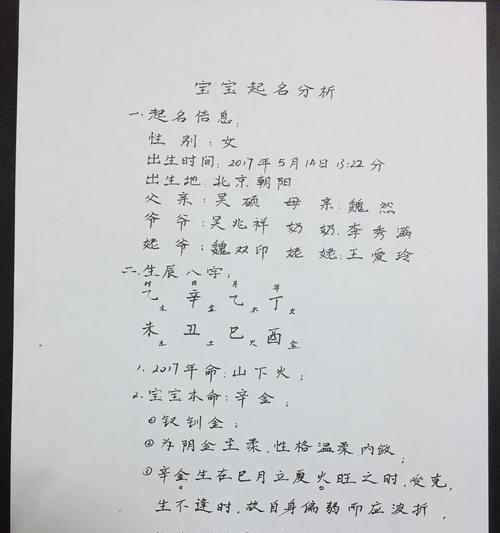 宝宝起名分析
一.起名信息:
性 别:女
出生时间:2017年5月14日13:22分
出生地:北京朝阳
父 亲:吴硕 母 亲:魏 然
爷 爷:吴兆祥 奶 奶:李秀涵
姥 爷:魏双印 姥 姥:王爱玲
二.生辰八字:
时 日 月 年
乙木 辛金 乙木 丁火
未土 丑土 巳火 酉金
1. 2017年命:山下火;
2.宝宝本命:辛金;
①钗钏金;
②为阴金主柔,性格温柔内敛;
③辛金生在巳月立夏火旺之时,受克,
生不逢时,故自身偏弱而应波折,